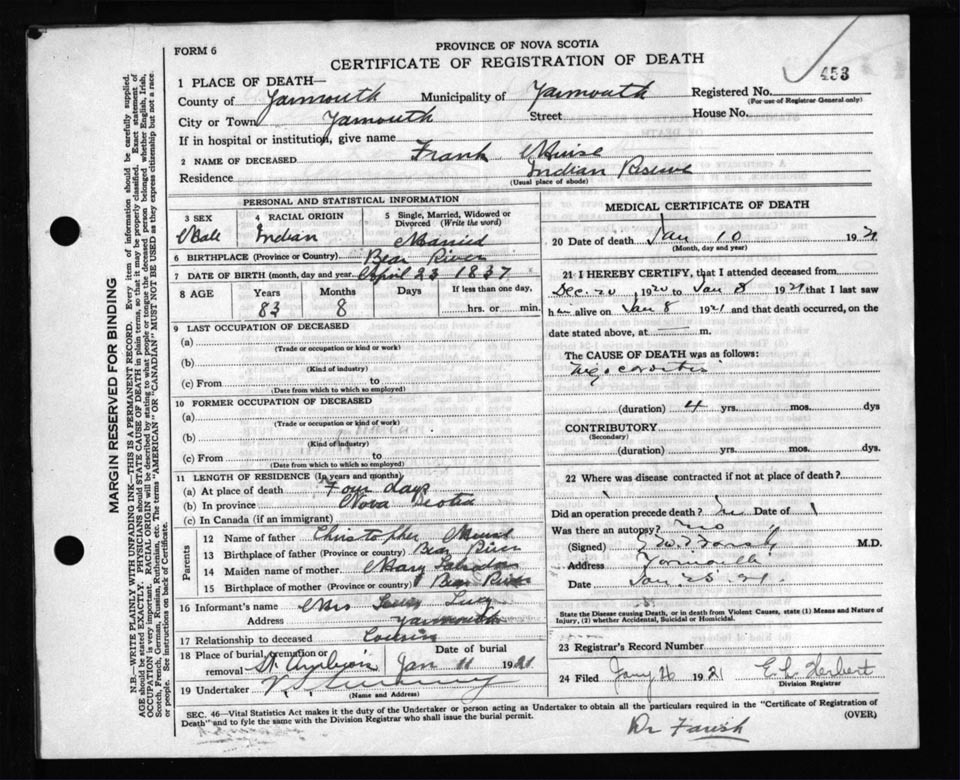 FORM 6
PROVINCE OF NOVA SCOTIA
CERTIFICATE OF REGISTRATION OF DEATH
453
1 PLACE OF DEATH—
County of Yarmouth Municipality of Yarmouth Registered No.
(For use of Registrar General only)
City or Town Yarmouth Street House No.
If in hospital or institution, give name
2 NAME OF DECEASED Frank Muise
Residence Indian Reserve
(Usual place of abode)
PERSONAL AND STATISTICAL INFORMATION
3 SEX 4 RACIAL ORIGIN 5 Single, Married, Widowed or Divorced (Write the word)
Male Indian Married
6 BIRTHPLACE (Province or Country) Bear River
7 DATE OF BIRTH (month, day and year) April 23 1837
8 AGE Years Months Days If less than one day,
83 8 hrs. or min.
9 LAST OCCUPATION OF DECEASED
(a)
(Trade or occupation or kind or work)
(b)
(Kind of industry)
(c) From to
(Date from which to which so employed)
10 FORMER OCCUPATION OF DECEASED
(a)
(Trade or occupation or kind of work)
(b)
(Kind of industry)
(c) From to
(Date from which to which so employed)
11 LENGTH OF RESIDENCE (In years and months)
(a) At place of death Four days
(b) In province Nova Scotia
(c) In Canada (if an immigrant)
Parents
12 Name of father Christopher Muise
13 Birthplace of father (Province or country) Bear River
14 Maiden name of mother Mary
15 Birthplace of mother (Province or country) Bear River
16 Informant's name Mrs
Address Yarmouth
17 Relationship to deceased Cousin
18 Place of burial, cremation or removal Date of burial
St. Jan 11 1921
19 Undertaker
(Name and Address)
MEDICAL CERTIFICATE OF DEATH
20 Date of death Jan 10 1921
(Month, day and year)
21 I HEREBY CERTIFY, that I attended deceased from
Dec. 20 1920 to Jan 8 1921 that I last saw
him alive on Jan 8 1921 and that death occurred, on the
date stated above, at m.
The CAUSE OF DEATH was as follows:
Myocarditis
(duration) 4 yrs. mos. dys
CONTRIBUTORY
(Secondary)
(duration) yrs. mos. dys
22 Where was disease contracted if not at place of death?
Did an operation precede death? Date of
Was there an autopsy? no
(Signed) M.D.
Address Yarmouth
Date Jan 25 21
State the Disease causing Death, or in death from Violent Causes, state (1) Means and Nature of
Injury, (2) whether Accidental, Suicidal or Homicidal.
23 Registrar's Record Number
24 Filed Jany 26 1921 E L Herbert
Division Registrar
SEC. 46—Vital Statistics Act makes it the duty of the Undertaker or person acting as Undertaker to obtain all the particulars required in the "Certificate of Registration of
Death" and to fyle the same with the Division Registrar who shall issue the burial permit. (OVER)
Dr Farish
MARGIN RESERVED FOR BINDING
N.B.—WRITE PLAINLY WITH UNFADING INK—THIS IS A PERMANENT RECORD. Every item of information should be carefully supplied.
AGE should be stated EXACTLY. PHYSICIANS should STATE CAUSE OF DEATH in plain terms, so that it may be properly classified. Exact statement of
OCCUPATION is very important. RACIAL ORIGIN will be described by stating to what people or tongue the deceased person belonged whether English, Irish,
Scotch, French, German, Russian, Ruthenian, etc. The terms "AMERICAN" OR "CANADIAN" MUST NOT BE USED as they express citizenship but not a race
or people. See instructions on back of Certificate.